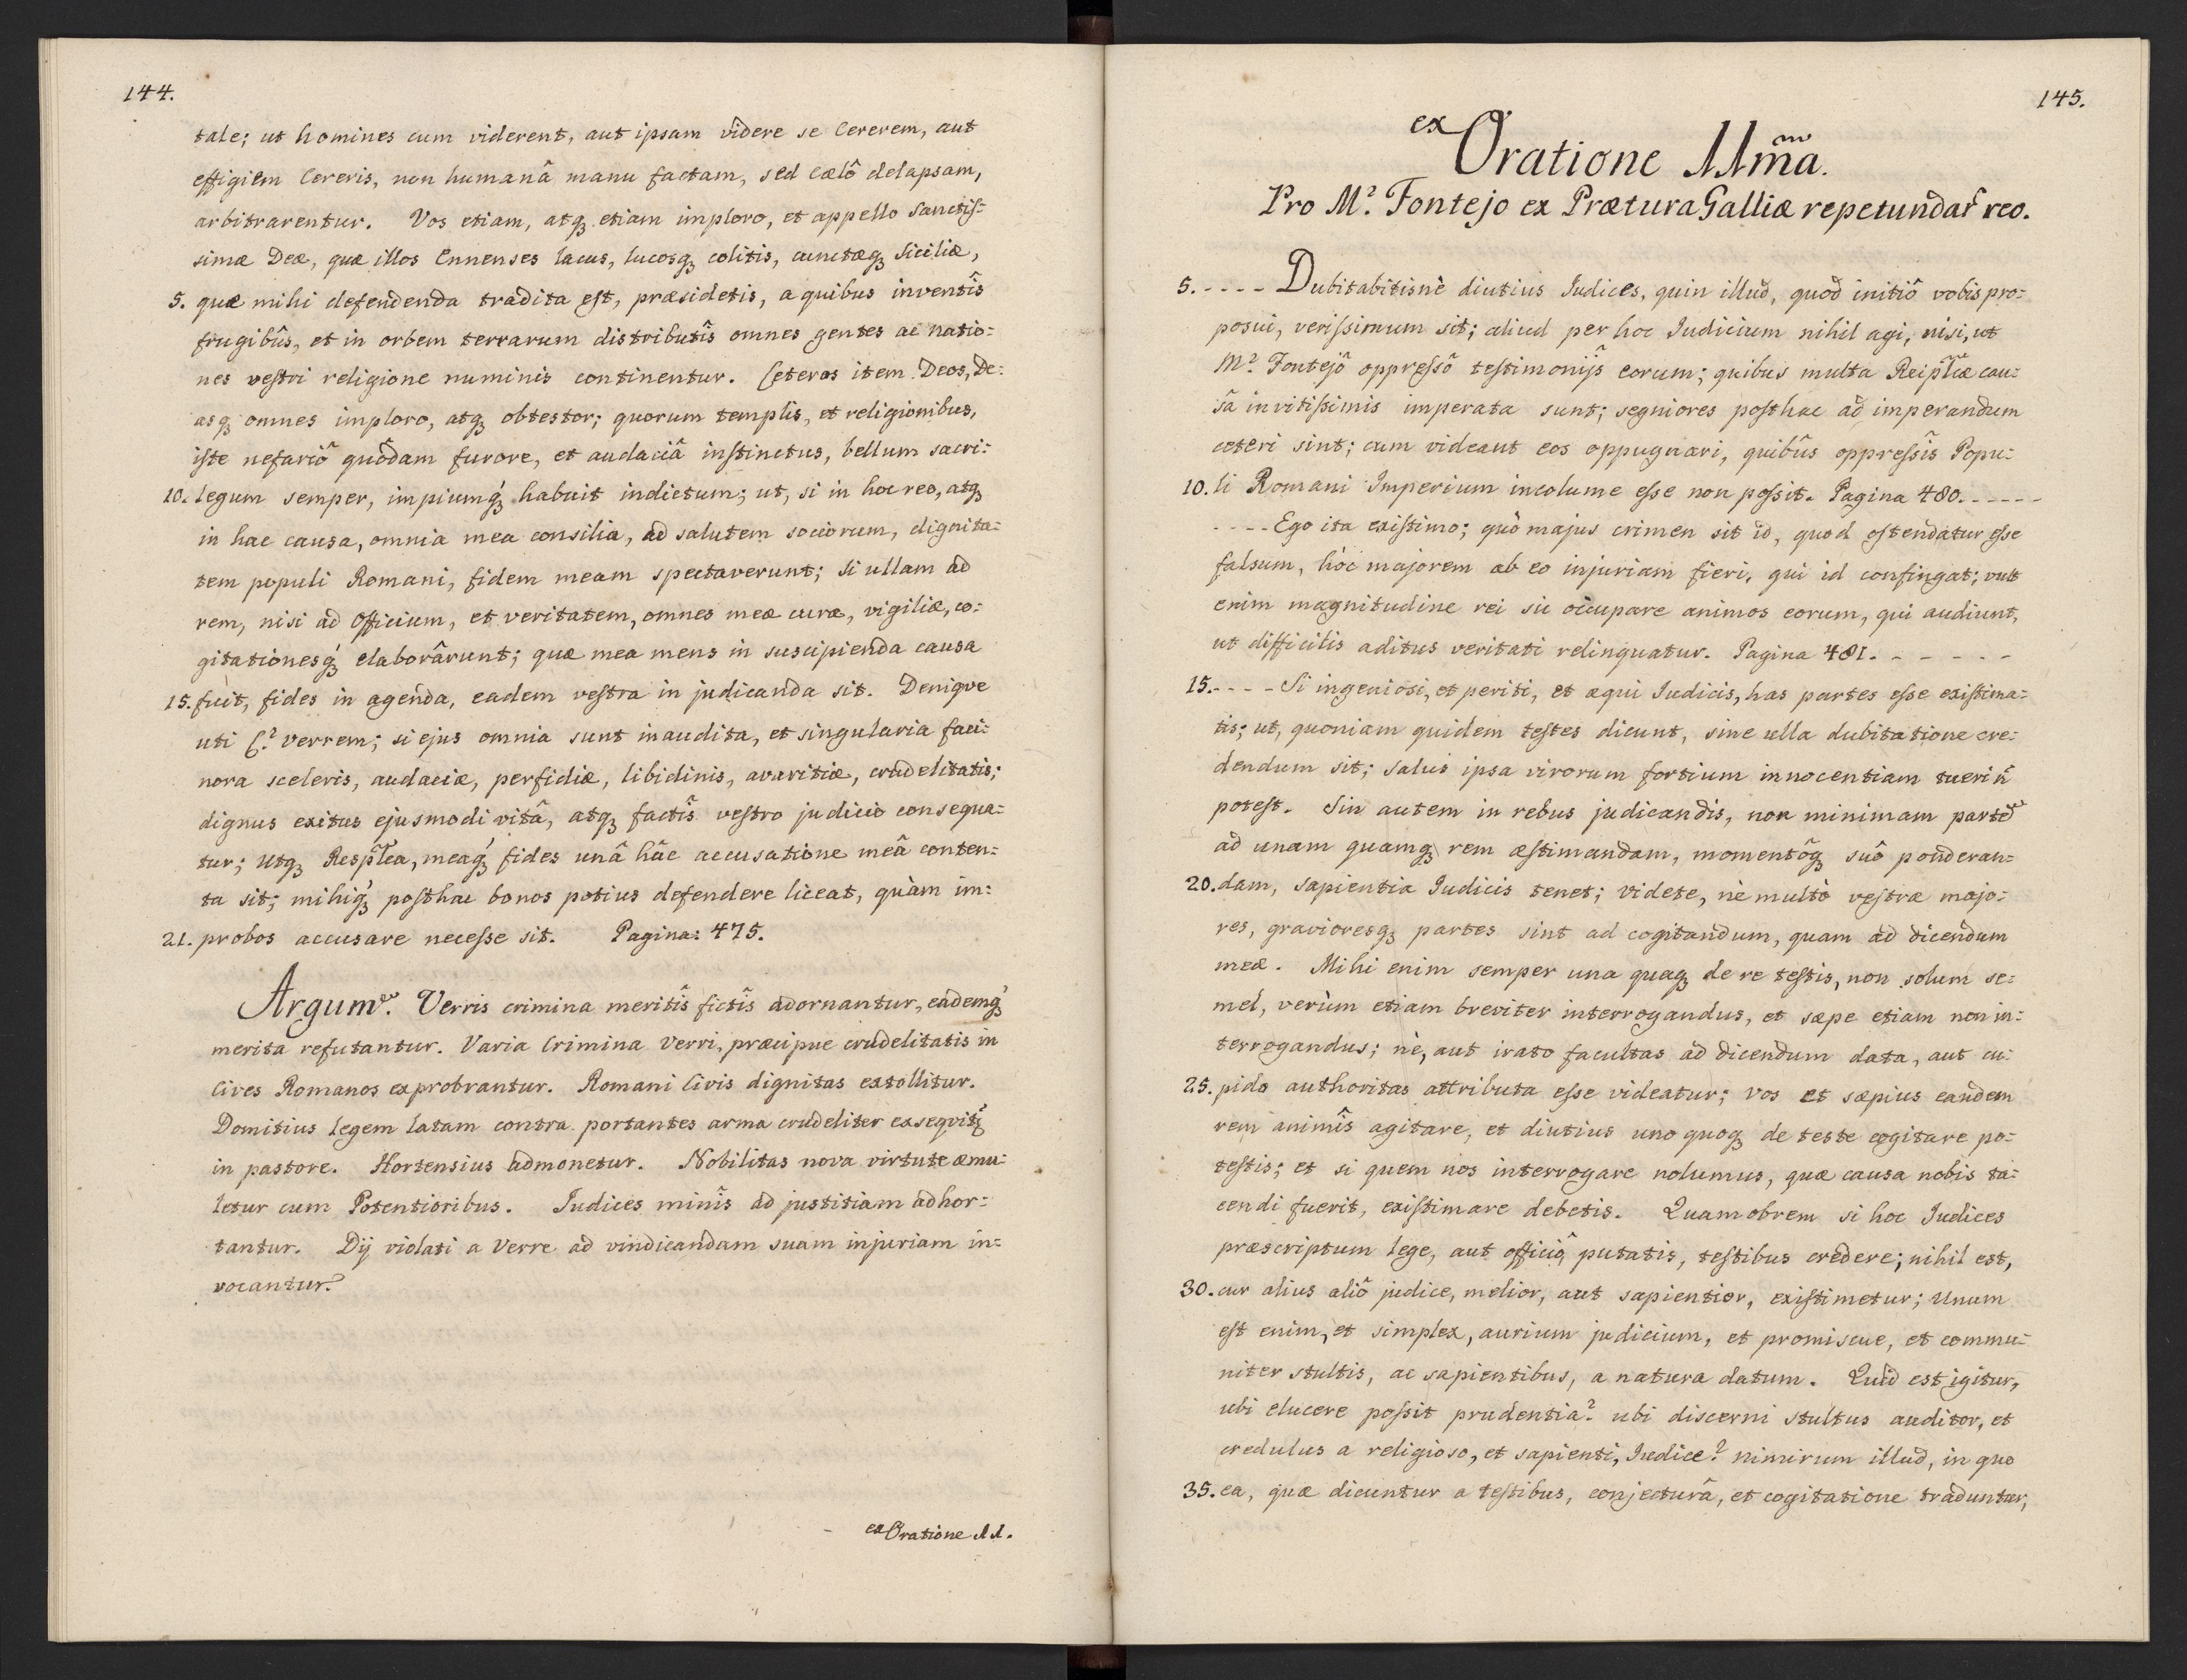 144.
tale; ut homines cum viderent, aut ipsam videre se Cererem, aut
effigiem Cereris, non humanâ manu factam, sed Cælô delapsam,
arbitrarentur. Vos etiam, atq₃ etiam imploro, et appello Sanctis=
simæ Deæ, quæ illos Ennenses lacus, lucosq₃ colitis, cunctæq₃ Siciliæ,
5. quæ mihi defendenda tradita est, præsidetis, a quibus inventîs
frugibûs, et in orbem terrarum distributîs omnes gentes ac natio=
nes vestri religione numinis continentur. Ceteros item Deos, De=
asq₃ omnes imploro, atq₃ obtestor; quorum templis, et religionibus,
iste nefariô quôdam furore, et audaciâ instinctus, bellum sacri=
10. legum semper, impiumq́₃ habuit indictum; ut, si in hoc reo, atq₃
in hac causa, omnia mea consilia, ad salutem sociorum, dignita=
tem populi Romani, fidem meam spectaverunt; si ullam ad
rem, nisi ad Officium, et veritatem, omnes meæ curæ, vigiliæ, co=
gitationesq́₃ elaborârunt; quæ mea mens in suscipienda causa
15. fuit, fides in agenda, eadem vestra in judicanda sit. Denique
uti C.² Verrem; si ejus omnia sunt inaudita, et singularia faci=
nora sceleris, audaciæ, perfidiæ, libidinis, avaritiæ, crudelitatis;
dignus exitus ejusmodi vitâ, atq₃ factîs vestro judicio consequa=
tur; utq₃ Resp̃lĩca, meaq́₃ fides unâ hâc accusatione meâ conten=
ta sit; mihiq́₃ posthac bonos potius defendere liceat, quàm im=
21. probos accusare necesse sit. Pagina: 475.
Argum. Verris crimina meritîs fictîs adornantur, eademq́₃
merita refutantur. Varia Crimina Verri, præcipue crudelitatis in
Cives Romanos exprobrantur. Romani Civis dignitas extollitur.
Domitius legem latam contra portantes arma crudeliter exseqvit̃
in pastore. Hortensius admonetur. Nobilitas nova virtute æmu=
letur cum Potentioribus. Iudices minîs ad justitiam adhor=
tantur. Dij violati a Verre ad vindicandam suam injuriam in=
vocantur.
ex Oratione 11.
145.
ex Oratione 11m̃a.
Pro M.² Fontejo ex Prætura Galliæ repetundar̃ reo.
5. - - - - Dubitabitisnè diutius Iudices, quin illud, quod initiô vobis pro=
posui, verissimum sit; aliud per hoc Iudicium nihil agi, nisi, ut
M.² Fontejô oppressô testimonijs eorum; quibus multa Reip̃lĩcæ cau=
sâ invitissimis imperata sunt; segniores posthac ad imperandum
ceteri sint; cum videant eos oppugnari, quibûs oppressîs Popu=
10. li Romani Imperium incolume esse non possit. Pagina 480. - - - - -
- - - - Ego ita existimo; quò majus crimen sit id, quod ostendatur esse
falsum, hòc majorem ab eo injuriam fieri, qui id confingat; vult
enim magnitudine rei sic occupare animos eorum, qui audiunt,
ut difficilis aditus veritati relinquatur. Pagina 481. - - - - -
15. - - - - Si ingeniosi, et periti, et æqui Iudicis, has partes esse existima=
tis; ut, quoniam quidem testes dicunt, sine ulla dubitatione cre=
dendum sit; salus ipsa virorum fortium innocentiam tueri ñ
potest. Sin autem in rebus judicandis, non minimam partẽ
ad unam quamq₃ rem æstimandam, momentôq₃ suô ponderan=
20. dam, sapientia Iudicis tenet; videte, nè multò vestræ majo=
res, gravioresq₃ partes sint ad cogitandum, quam ad dicendum
meæ. Mihi enim semper una quaq₃ de re testis, non solùm se=
mel, verùm etiam breviter interrogandus, et sæpe etiam non in=
terrogandus; nè, aut irato facultas ad dicendum data, aut cu=
25. pido authoritas attributa esse videatur; vos et sæpius eandem
rem animîs agitare, et diutius uno quoq₃ de teste cogitare po=
testis; et si quem nos interrogare nolumus, quæ causa nobis ta=
cendi fuerit, existimare debetis. Quamobrem si hoc Iudices
præscriptum lege, aut officiô putatis, testibus credere; nihil est,
30. cur alius aliô judice, melior, aut sapientior, existimetur; Unum
est enim, et simplex, aurium judicium, et promiscue, et commu=
niter stultis, ac sapientibus, a natura datum. Quid est igitur,
ubi elucere possit prudentia? ubi discerni stultus auditor, et
credulus a religioso, et sapienti, Iudice? nimirum illud, in quo
35. ea, quæ dicuntur a testibus, conjecturâ, et cogitatione traduntur,